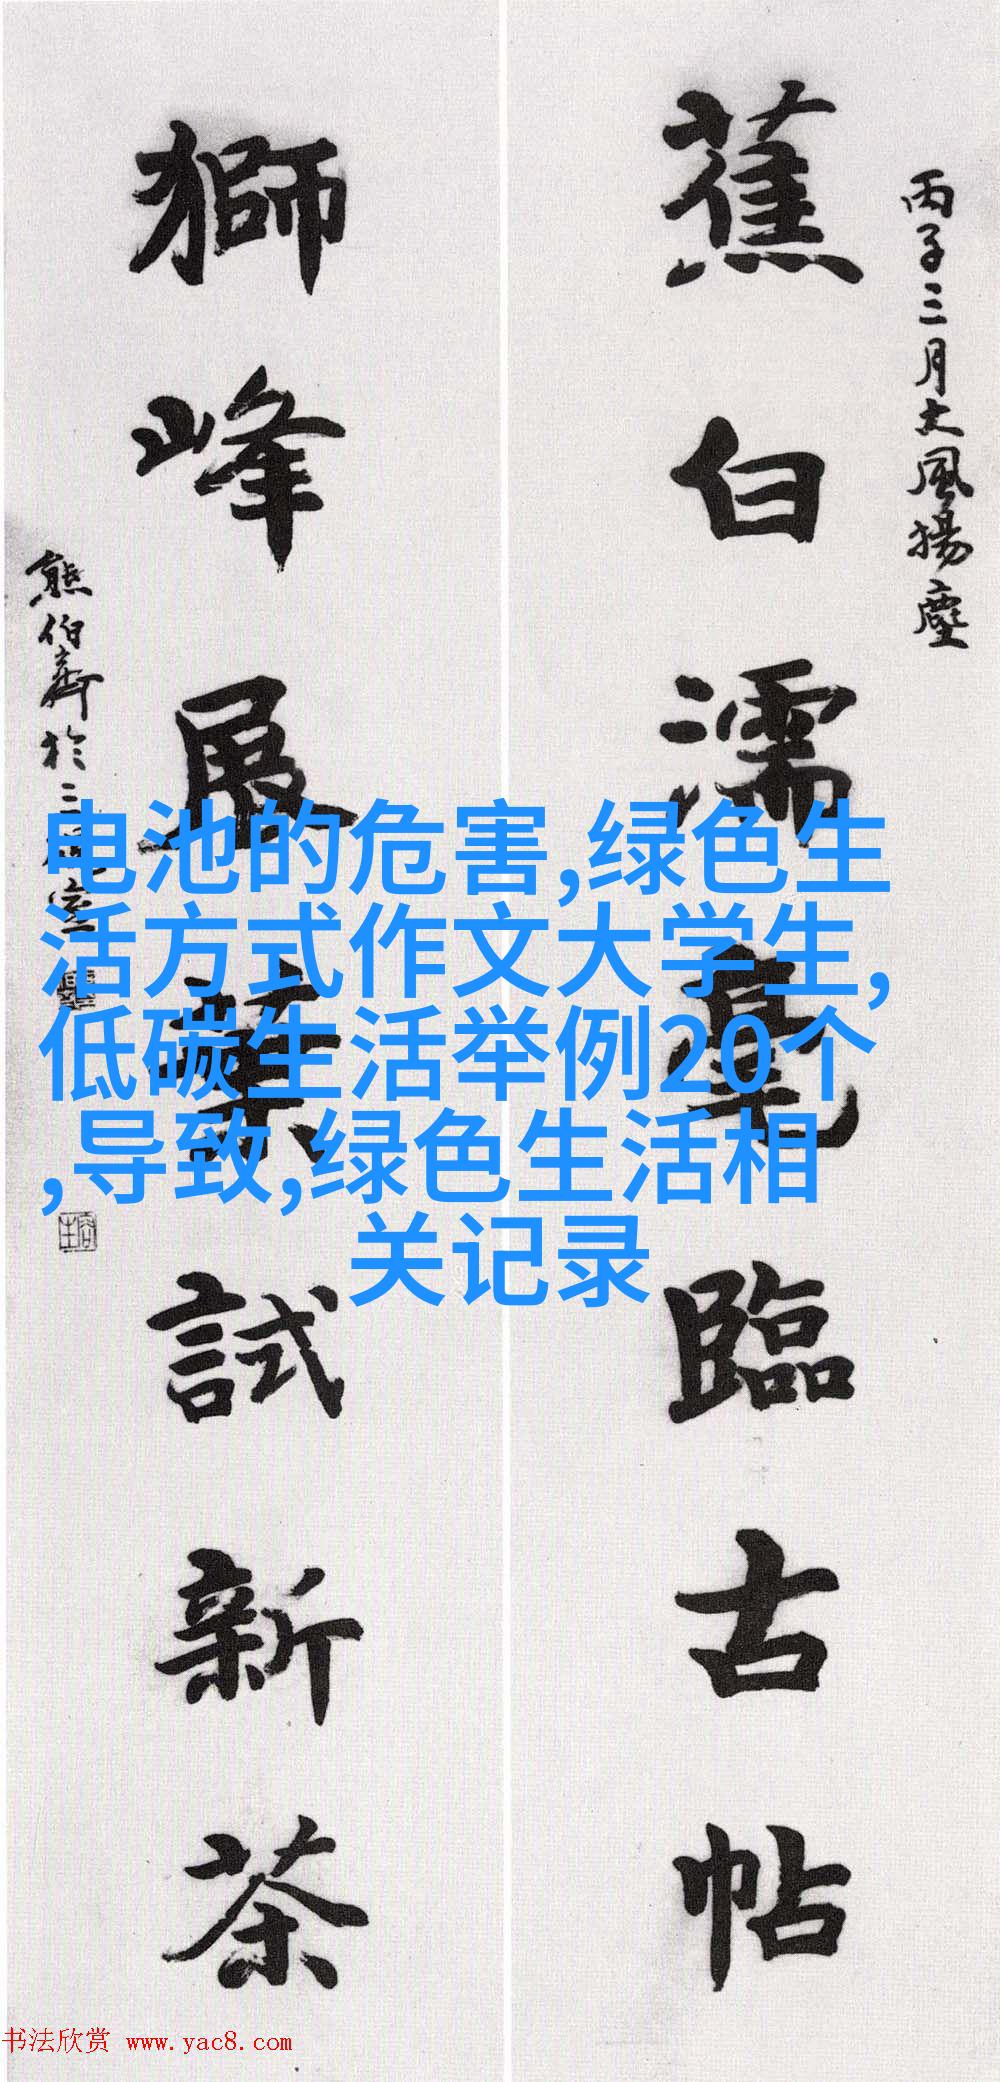 丙子三月大風揚塵
蕉白濡毫臨古帖
獅峰展葉試新茶
熊伯齊於三
室
电池的危害,绿色生
活方式作文大学生,
低碳生活举例20个
,导致,绿色生活相
关记录
书法欣赏 www.yac8.com